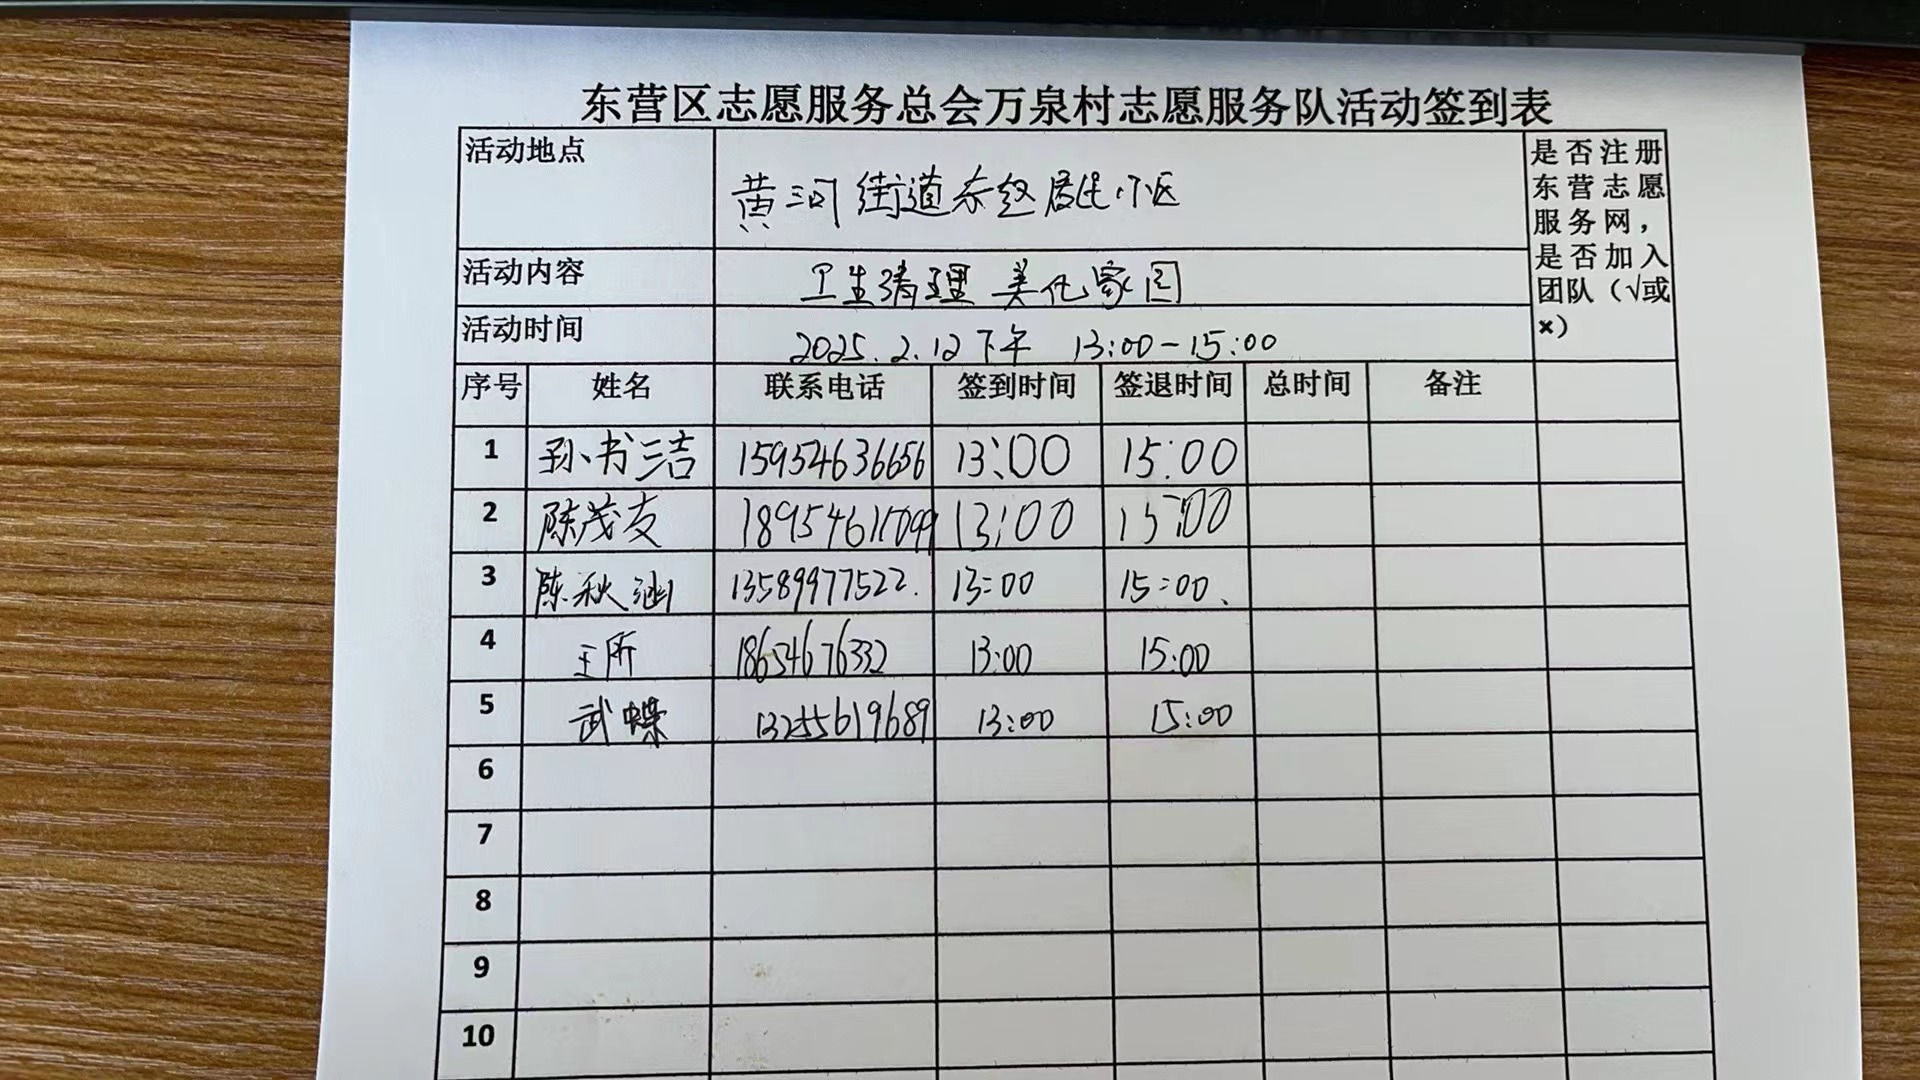 东营区志愿服务总会万泉村志愿服务队活动签到表
活动地点
黄河街道东赵居民小区
是否注册
东营志愿
服务网，
是否加入
团队（√或
×）
活动内容
卫生清理 美化家园
活动时间
2025.2.12下午 13:00-15:00
序号 姓名 联系电话 签到时间 签退时间 总时间 备注
1 孙书洁 15954636656 13:00 15:00
2 陈茂友 13:00 15:00
3 陈秋涵 13589977522. 13:00 15:00、
4 王所 18654676332 13:00 15:00
5 武蝶 13255619689 13:00 15:00
6
7
8
9
10